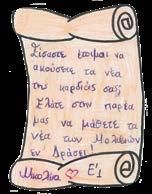 Είσαστε έτοιμοι να
ακούσετε τα νέα
της καρδιάς σας;
Ελάτε στην παρέα
μας να μάθετε τα
νέα των Μολυβιών
εν Δράσει!
Νικολίνα Ε'1